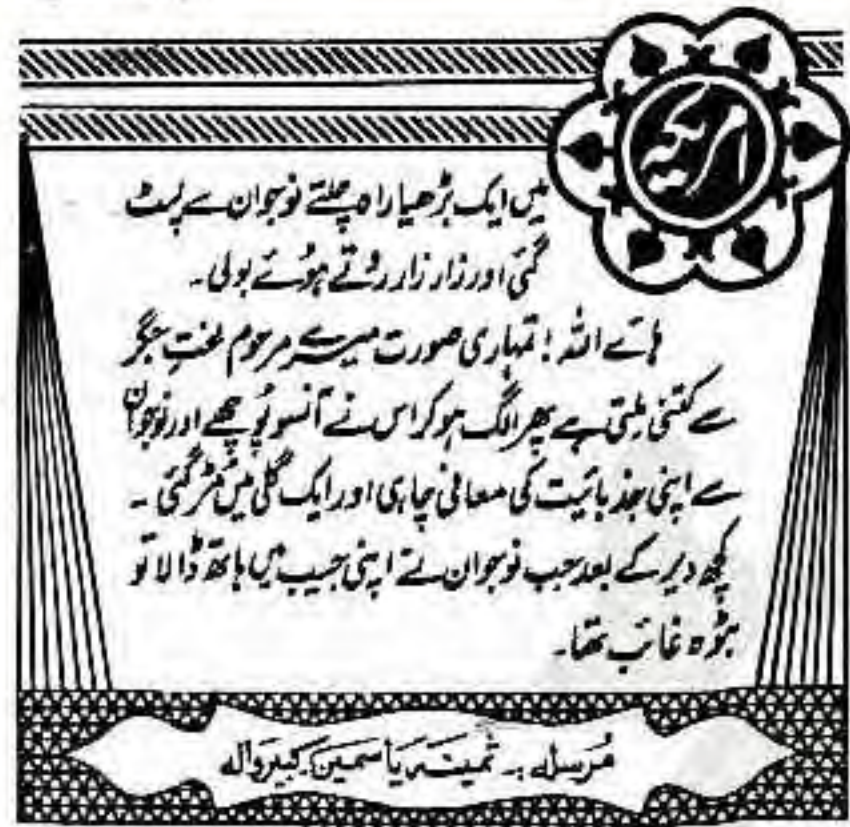 امریکہ
میں ایک بڑھیا راہ چلتے نوجوان سے لپٹ
گئی اور زار زار روتے ہوئے بولی۔
ہائے اللہ! تمہاری صورت میرے مرحوم لختِ جگر
سے کتنی ملتی ہے پھر الگ ہو کر اس نے آنسو پُونچھے اور نوجوان
سے اپنی جذباتیت کی معافی چاہی اور ایک گلی میں مُڑ گئی۔
کچھ دیر کے بعد جب نوجوان نے اپنی جیب میں ہاتھ ڈالا تو
بٹوہ غائب تھا۔
مُرسلہ:۔ ثمینہ یاسمین۔ کبیروالہ